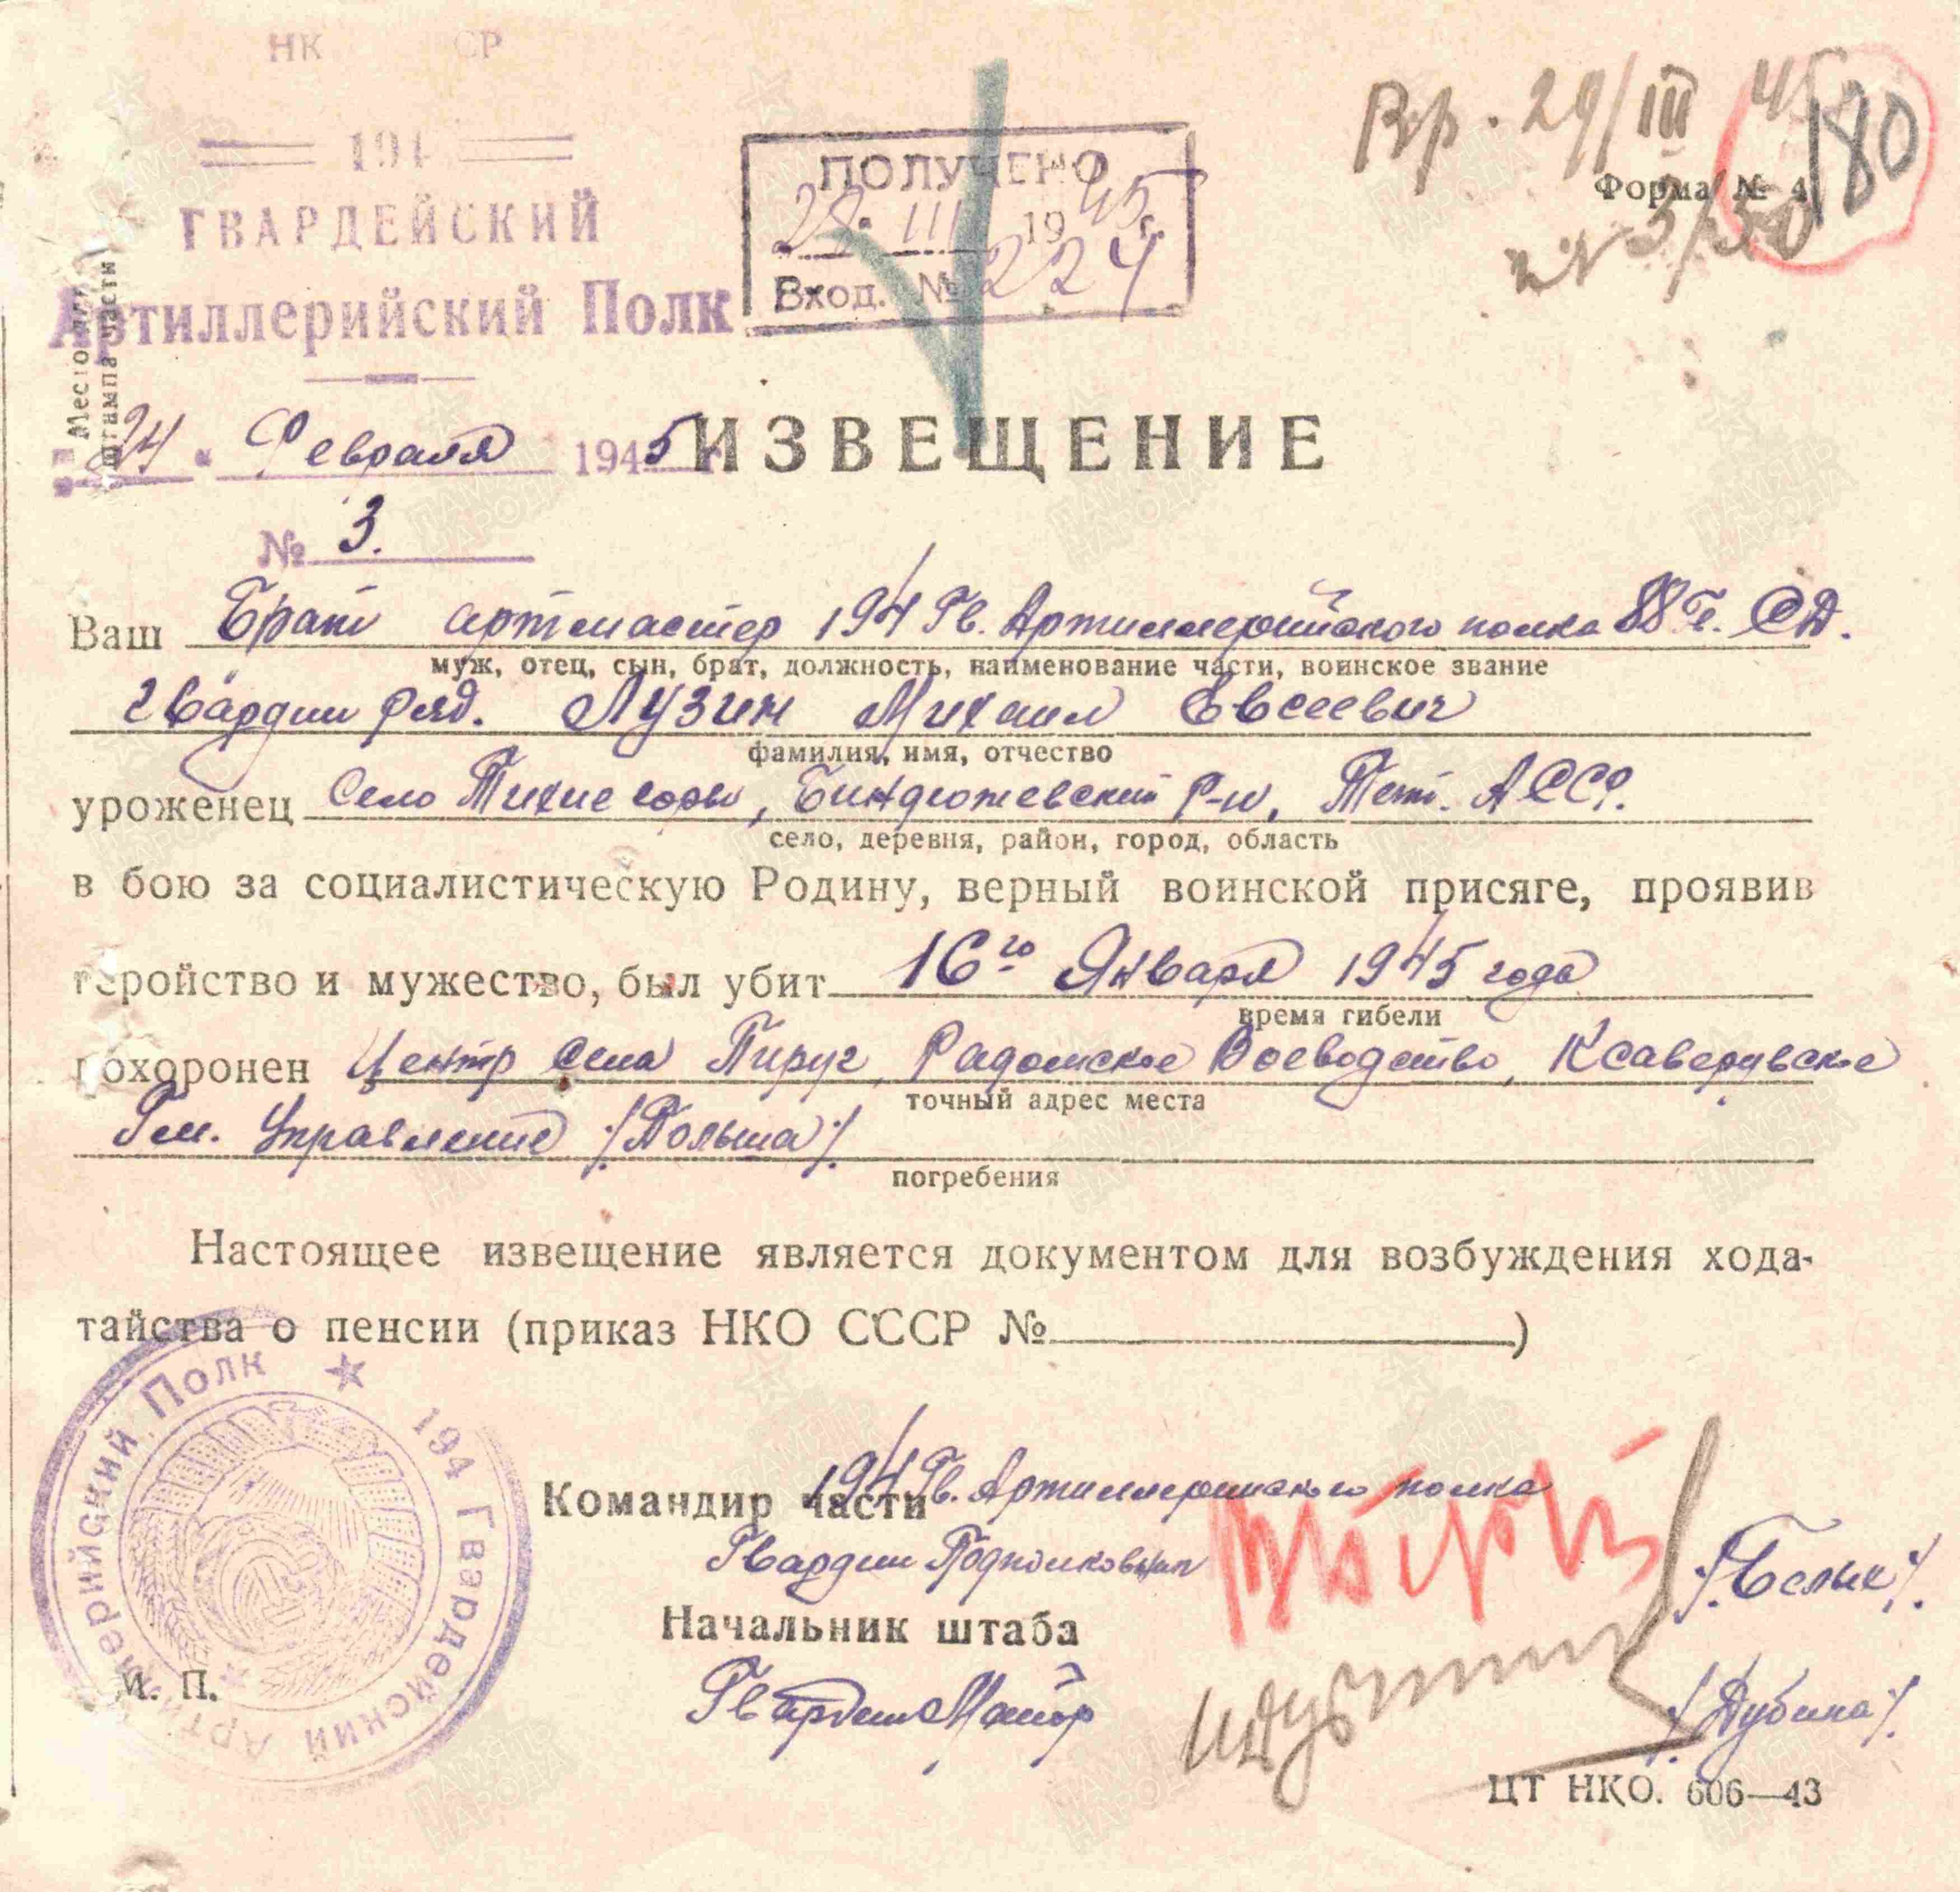 НК СР
194
ГВАРДЕЙСКИЙ
Артиллерийский Полк
Место
штампа части)
ПОЛУЧЕНО
28 III 1945 г.
Вход. № 224
Вр. 29/III 45
180
Форма № 4
24 Февраля 1945
ИЗВЕЩЕНИЕ
№ 3.
Ваш Брат артмастер 194 Гв. Артиллерийского полка 88 Гв. СД.
муж, отец, сын, брат, должность, наименование части, воинское звание
гвардии ряд. Лузин Михаил Евсеевич
фамилия, имя, отчество
уроженец Село Тихие горы, Биндюжевский р-н, Тат. АССР.
село, деревня, район, город, область
в бою за социалистическую Родину, верный воинской присяге, проявив
геройство и мужество, был убит 16го Января 1945 года
время гибели
похоронен Центр Села Пируг, Радомское Воеводство, Ксаверувское
точный адрес места
Гм. Управление /Польша/
погребения
Настоящее извещение является документом для возбуждения хода-
тайства о пенсии (приказ НКО СССР № )
194 Гвардейский Артиллерийский Полк
Командир части 194 Гв. Артиллерийского полка
Гвардии Подполковник /Белых/.
Начальник штаба
Гвардии Майор /Дубина/.
М. П.
ЦТ НКО. 606—43
ПАМЯТЬ НАРОДА